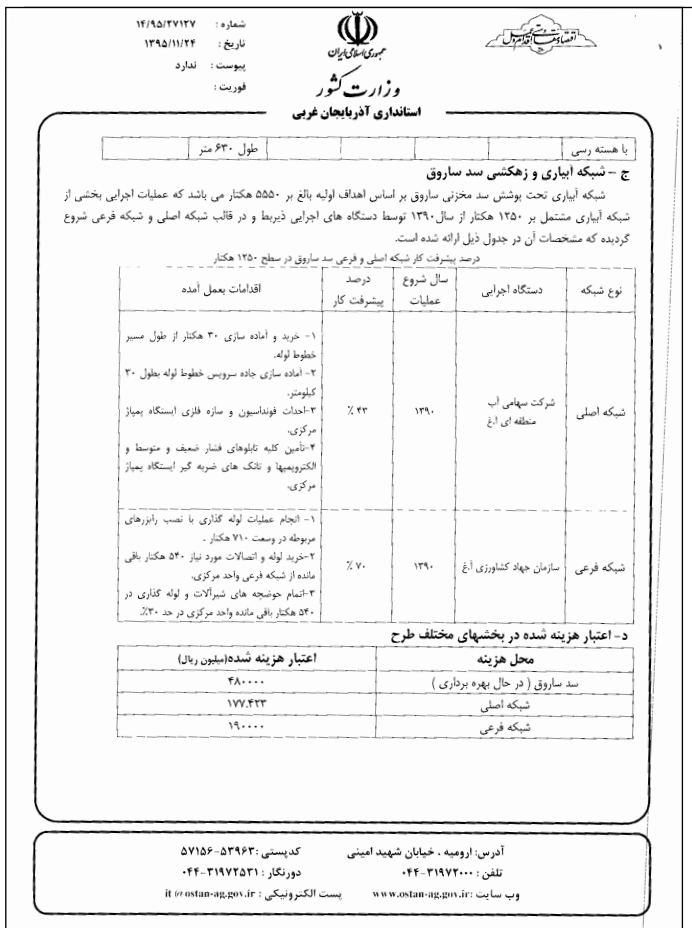 شماره : ۱۴/۹۵/۲۷۱۲۷
تاریخ : ۱۳۹۵/۱۱/۲۴
پیوست : ندارد
فوریت :
جمهوری اسلامی ایران
وزارت کشور
استانداری آذربایجان غربی
۱
با هسته رسی
طول ۶۳۰ متر
ج – شبکه آبیاری و زهکشی سد ساروق
شبکه آبیاری تحت پوشش سد مخزنی ساروق بر اساس اهداف اولیه بالغ بر ۵۵۵۰ هکتار می باشد که عملیات اجرایی بخشی از
شبکه آبیاری مشتمل بر ۱۲۵۰ هکتار از سال۱۳۹۰ توسط دستگاه های اجرایی ذیربط و در قالب شبکه اصلی و شبکه فرعی شروع
گردیده که مشخصات آن در جدول ذیل ارائه شده است.
درصد پیشرفت کار شبکه اصلی و فرعی سد ساروق در سطح ۱۲۵۰ هکتار
نوع شبکه
دستگاه اجرایی
سال شروع
عملیات
درصد
پیشرفت کار
اقدامات بعمل آمده
شبکه اصلی
شرکت سهامی آب
منطقه ای آ.غ
۱۳۹۰
۴۳ ٪
۱- خرید و آماده سازی ۳۰ هکتار از طول مسیر
خطوط لوله.
۲- آماده سازی جاده سرویس خطوط لوله بطول ۳۰
کیلومتر.
۳-احداث فونداسیون و سازه فلزی ایستگاه پمپاژ
مرکزی.
۴-تأمین کلیه تابلوهای فشار ضعیف و متوسط و
الکتروپمپها و تانک های ضربه گیر ایستگاه پمپاژ
مرکزی.
شبکه فرعی
سازمان جهاد کشاورزی آ.غ
۱۳۹۰
۷۰ ٪
۱- انجام عملیات لوله گذاری با نصب رایزرهای
مربوطه در وسعت ۷۱۰ هکتار .
۲-خرید لوله و اتصالات مورد نیاز ۵۴۰ هکتار باقی
مانده از شبکه فرعی واحد مرکزی.
۳-اتمام حوضچه های شیرآلات و لوله گذاری در
۵۴۰ هکتار باقی مانده واحد مرکزی در حد ۳۰٪.
د- اعتبار هزینه شده در بخشهای مختلف طرح
محل هزینه
اعتبار هزینه شده(میلیون ریال)
سد ساروق ( در حال بهره برداری )
۴۸۰۰۰۰
شبکه اصلی
۱۷۷.۴۲۳
شبکه فرعی
۱۹۰۰۰۰
آدرس: ارومیه ، خیابان شهید امینی
کدپستی :۵۳۹۶۳-۵۷۱۵۶
تلفن : ۳۱۹۷۲۰۰۰-۰۴۴
دورنگار : ۳۱۹۷۲۵۳۱-۰۴۴
وب سایت :www.ostan-ag.gov.ir
پست الکترونیکی : it@ostan-ag.gov.ir